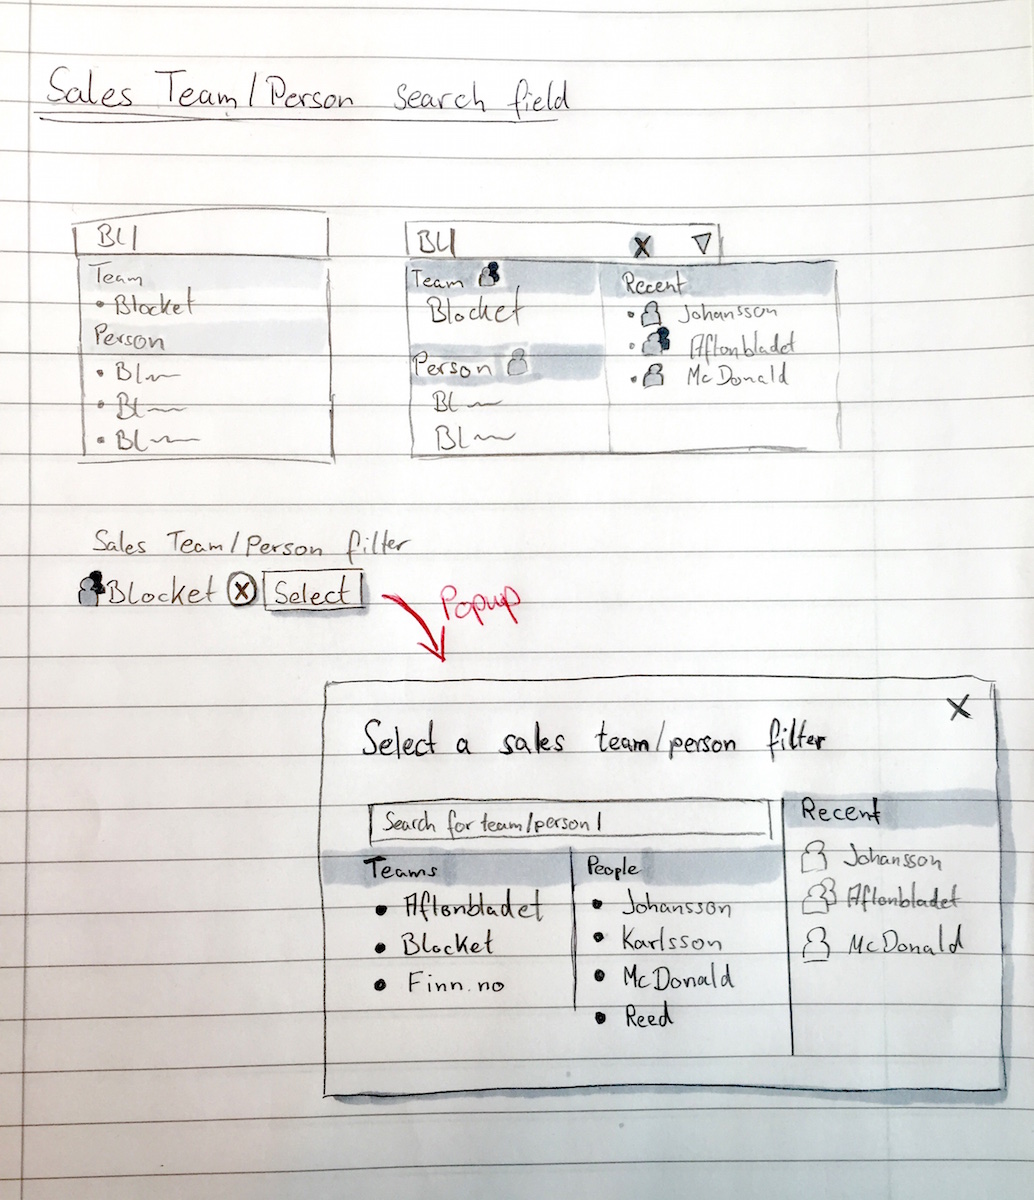 Sales Team/Person search field
Bl
Team
• Blocket
Person
• Bl
• Bl
• Bl
Bl X
Team
Blocket
Person
Bl
Bl
Recent
• Johansson
• Aftonbladet
• McDonald
Sales Team/Person filter
Blocket X Select
Popup
X
Select a sales team/person filter
Search for team/person
Teams
• Aftonbladet
• Blocket
• Finn.no
People
• Johansson
• Karlsson
• McDonald
• Reed
Recent
Johansson
Aftonbladet
McDonald